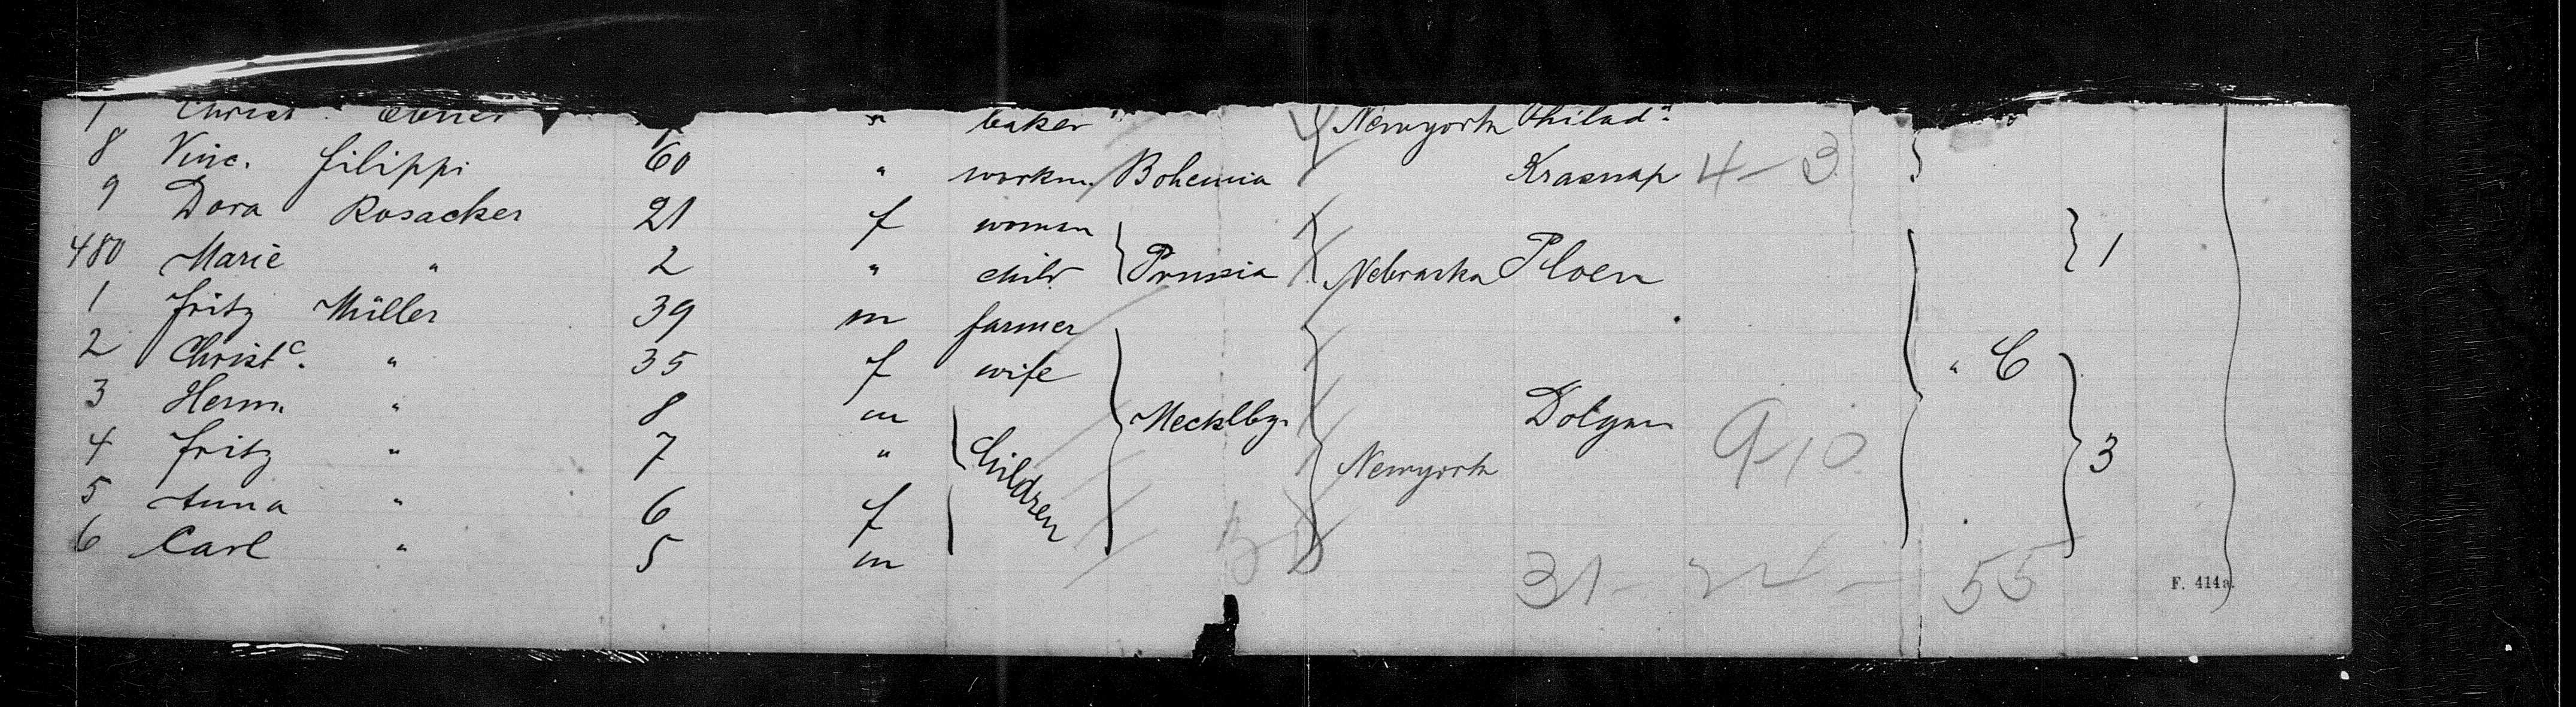 baker " Newyork Philad.a
8 Vinc. Filippi 60 " workm. Bohemia Krasnap 4-3
9 Dora Rosacker 21 f woman
480 Marie " 2 " child Prussia Nebraska Ploen 1
1 Fritz Müller 39 m farmer
2 Christe. " 35 f wife " C
3 Herm. " 8 m Mecklbg. Dolgen
4 Fritz " 7 " Children Newyork 9 10 3
5 Anna " 6 f
6 Carl " 5 m
31 - 24 - 55 F. 414a.